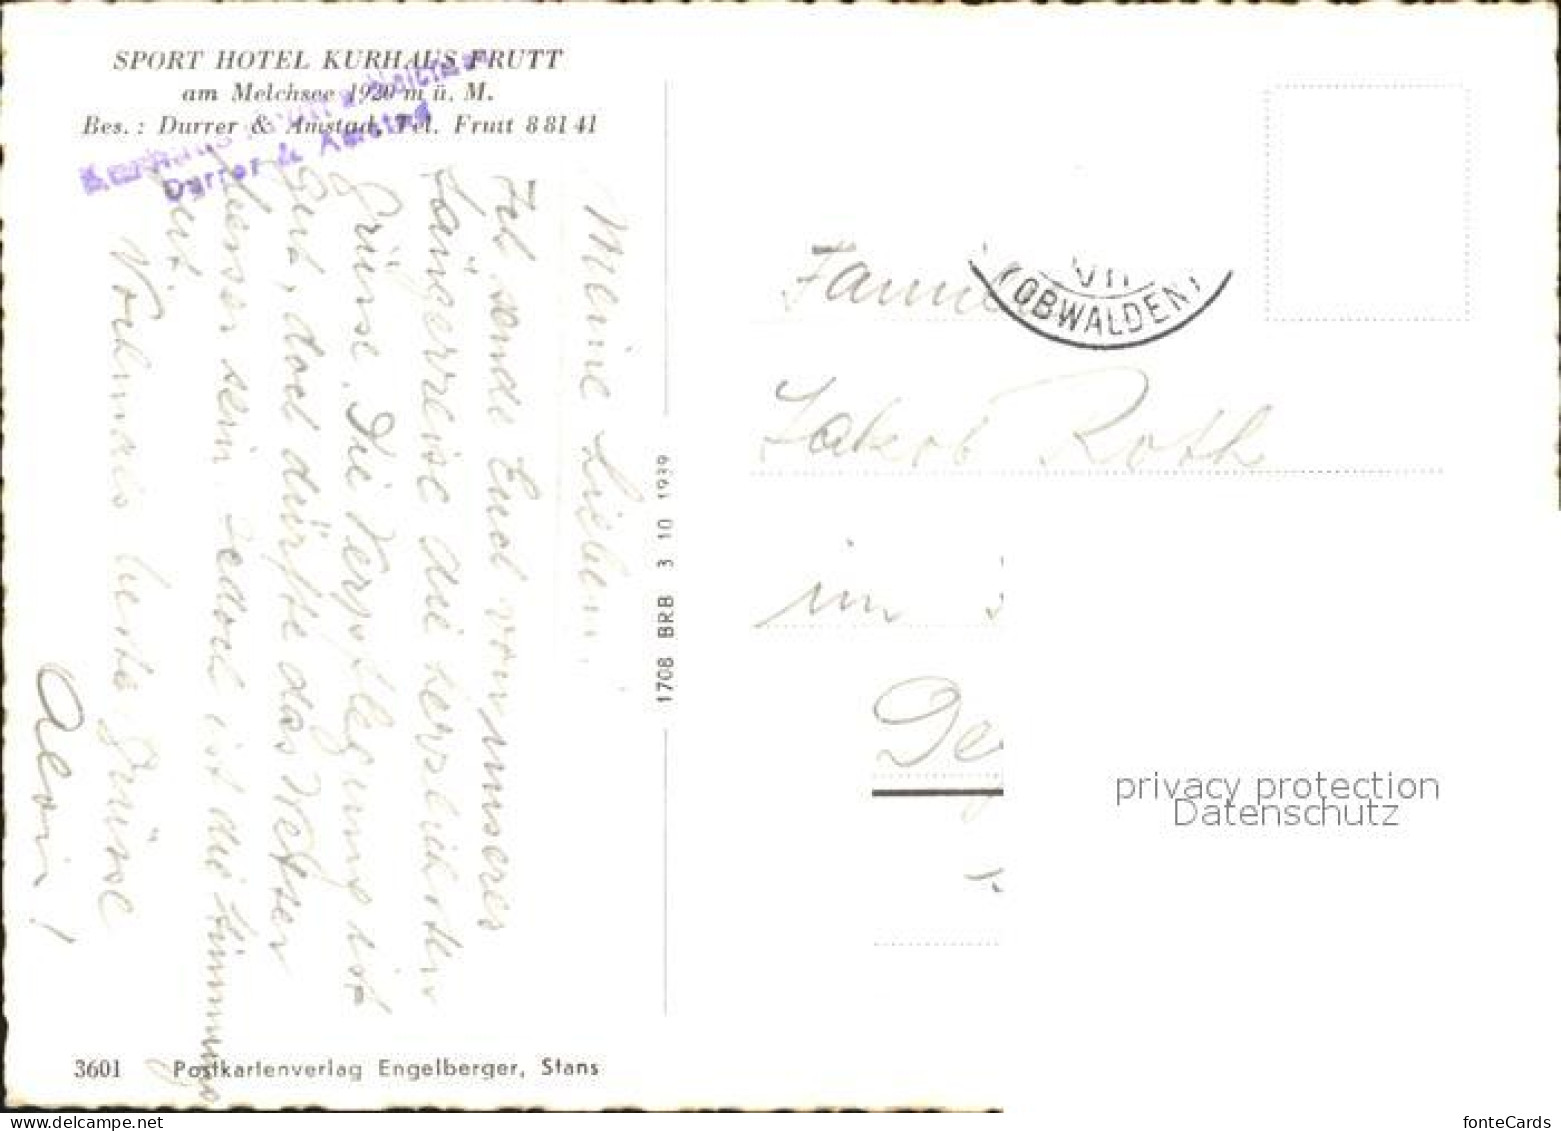 SPORT HOTEL KURHAUS FRUTT
am Melchsee 1920 m ü. M.
Bes.: Durrer & Amstad, Tel. Frutt 8 81 41
Kurhaus Frutt
Durrer & Amstad
Meine Lieben,
Ich sende Euch von unseres
Sängerreise die herzlichsten
Grüsse. Die Verpflegung ist
gut, doch dürfte das Wetter
besser sein. Jedoch ist die Stimmung
gut
Nochmals beste Grüsse
1708 BRB 3 10 1939
(OBWALDEN)
Familie
Jakob Roth
im
De
privacy protection
Datenschutz
3601 Postkartenverlag Engelberger, Stans
fonteCards